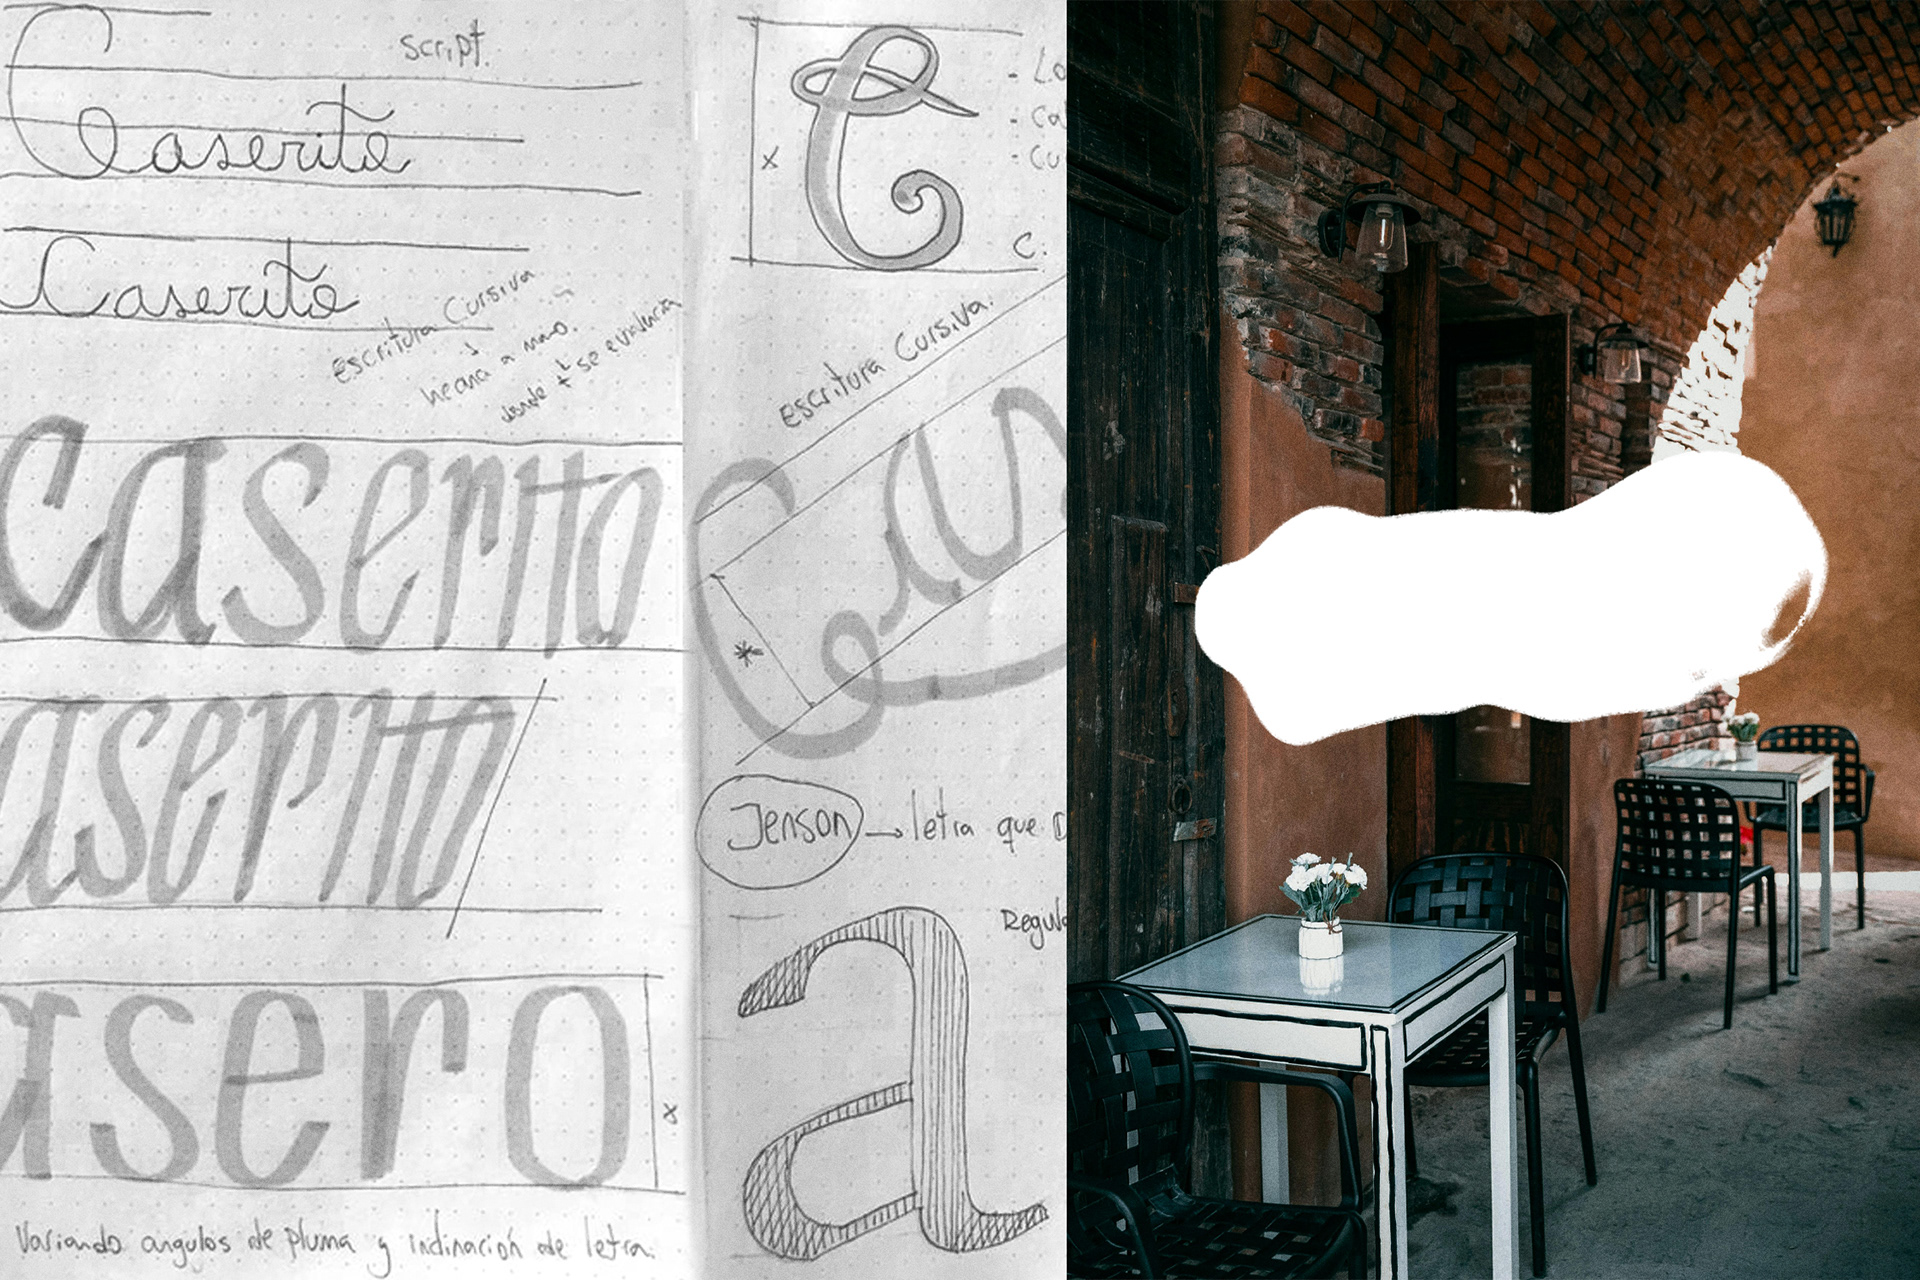 script.
Caserito
Caserito
Escritura Cursiva
hecha a mano.
donde + se evidencia
caserito
aserito
asero
x
Variando angulos de pluma y inclinación de letra.
- Lo
- Ca
- Cu
x
C.
Escritura Cursiva.
Cas
*
Jenson → letra que
Regul
a